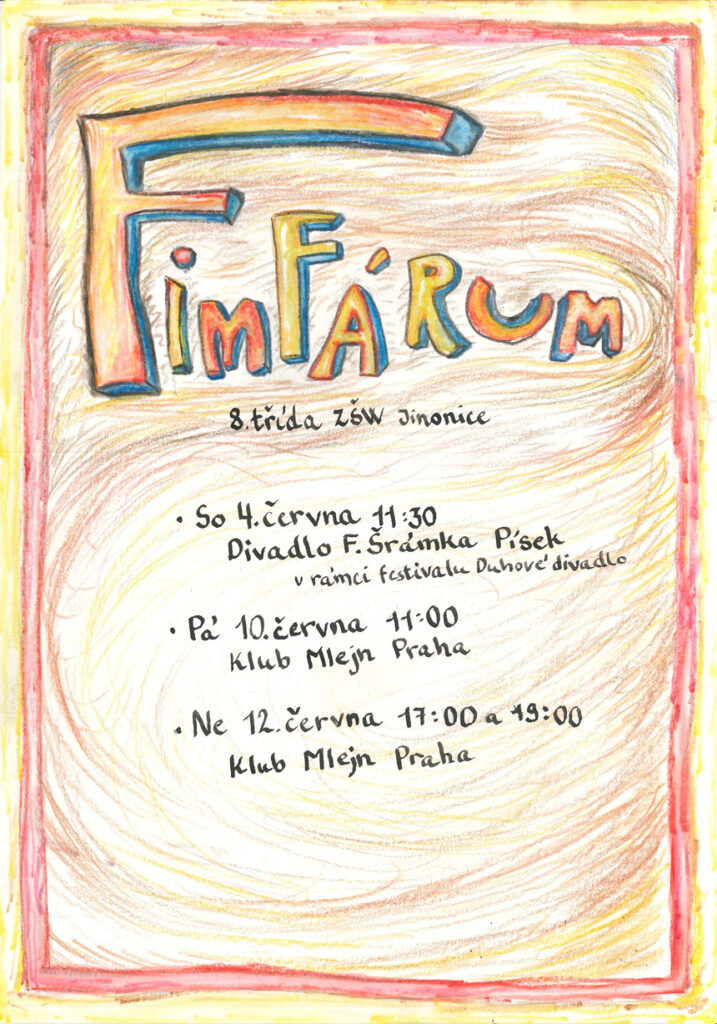 FimFÁRUM
8. třída ZŠW Jinonice
• So 4. června 11:30
Divadlo F. Šrámka Písek
v rámci festivalu Duhové divadlo
• Pá 10. června 11:00
Klub Mlejn Praha
• Ne 12. června 17:00 a 19:00
Klub Mlejn Praha